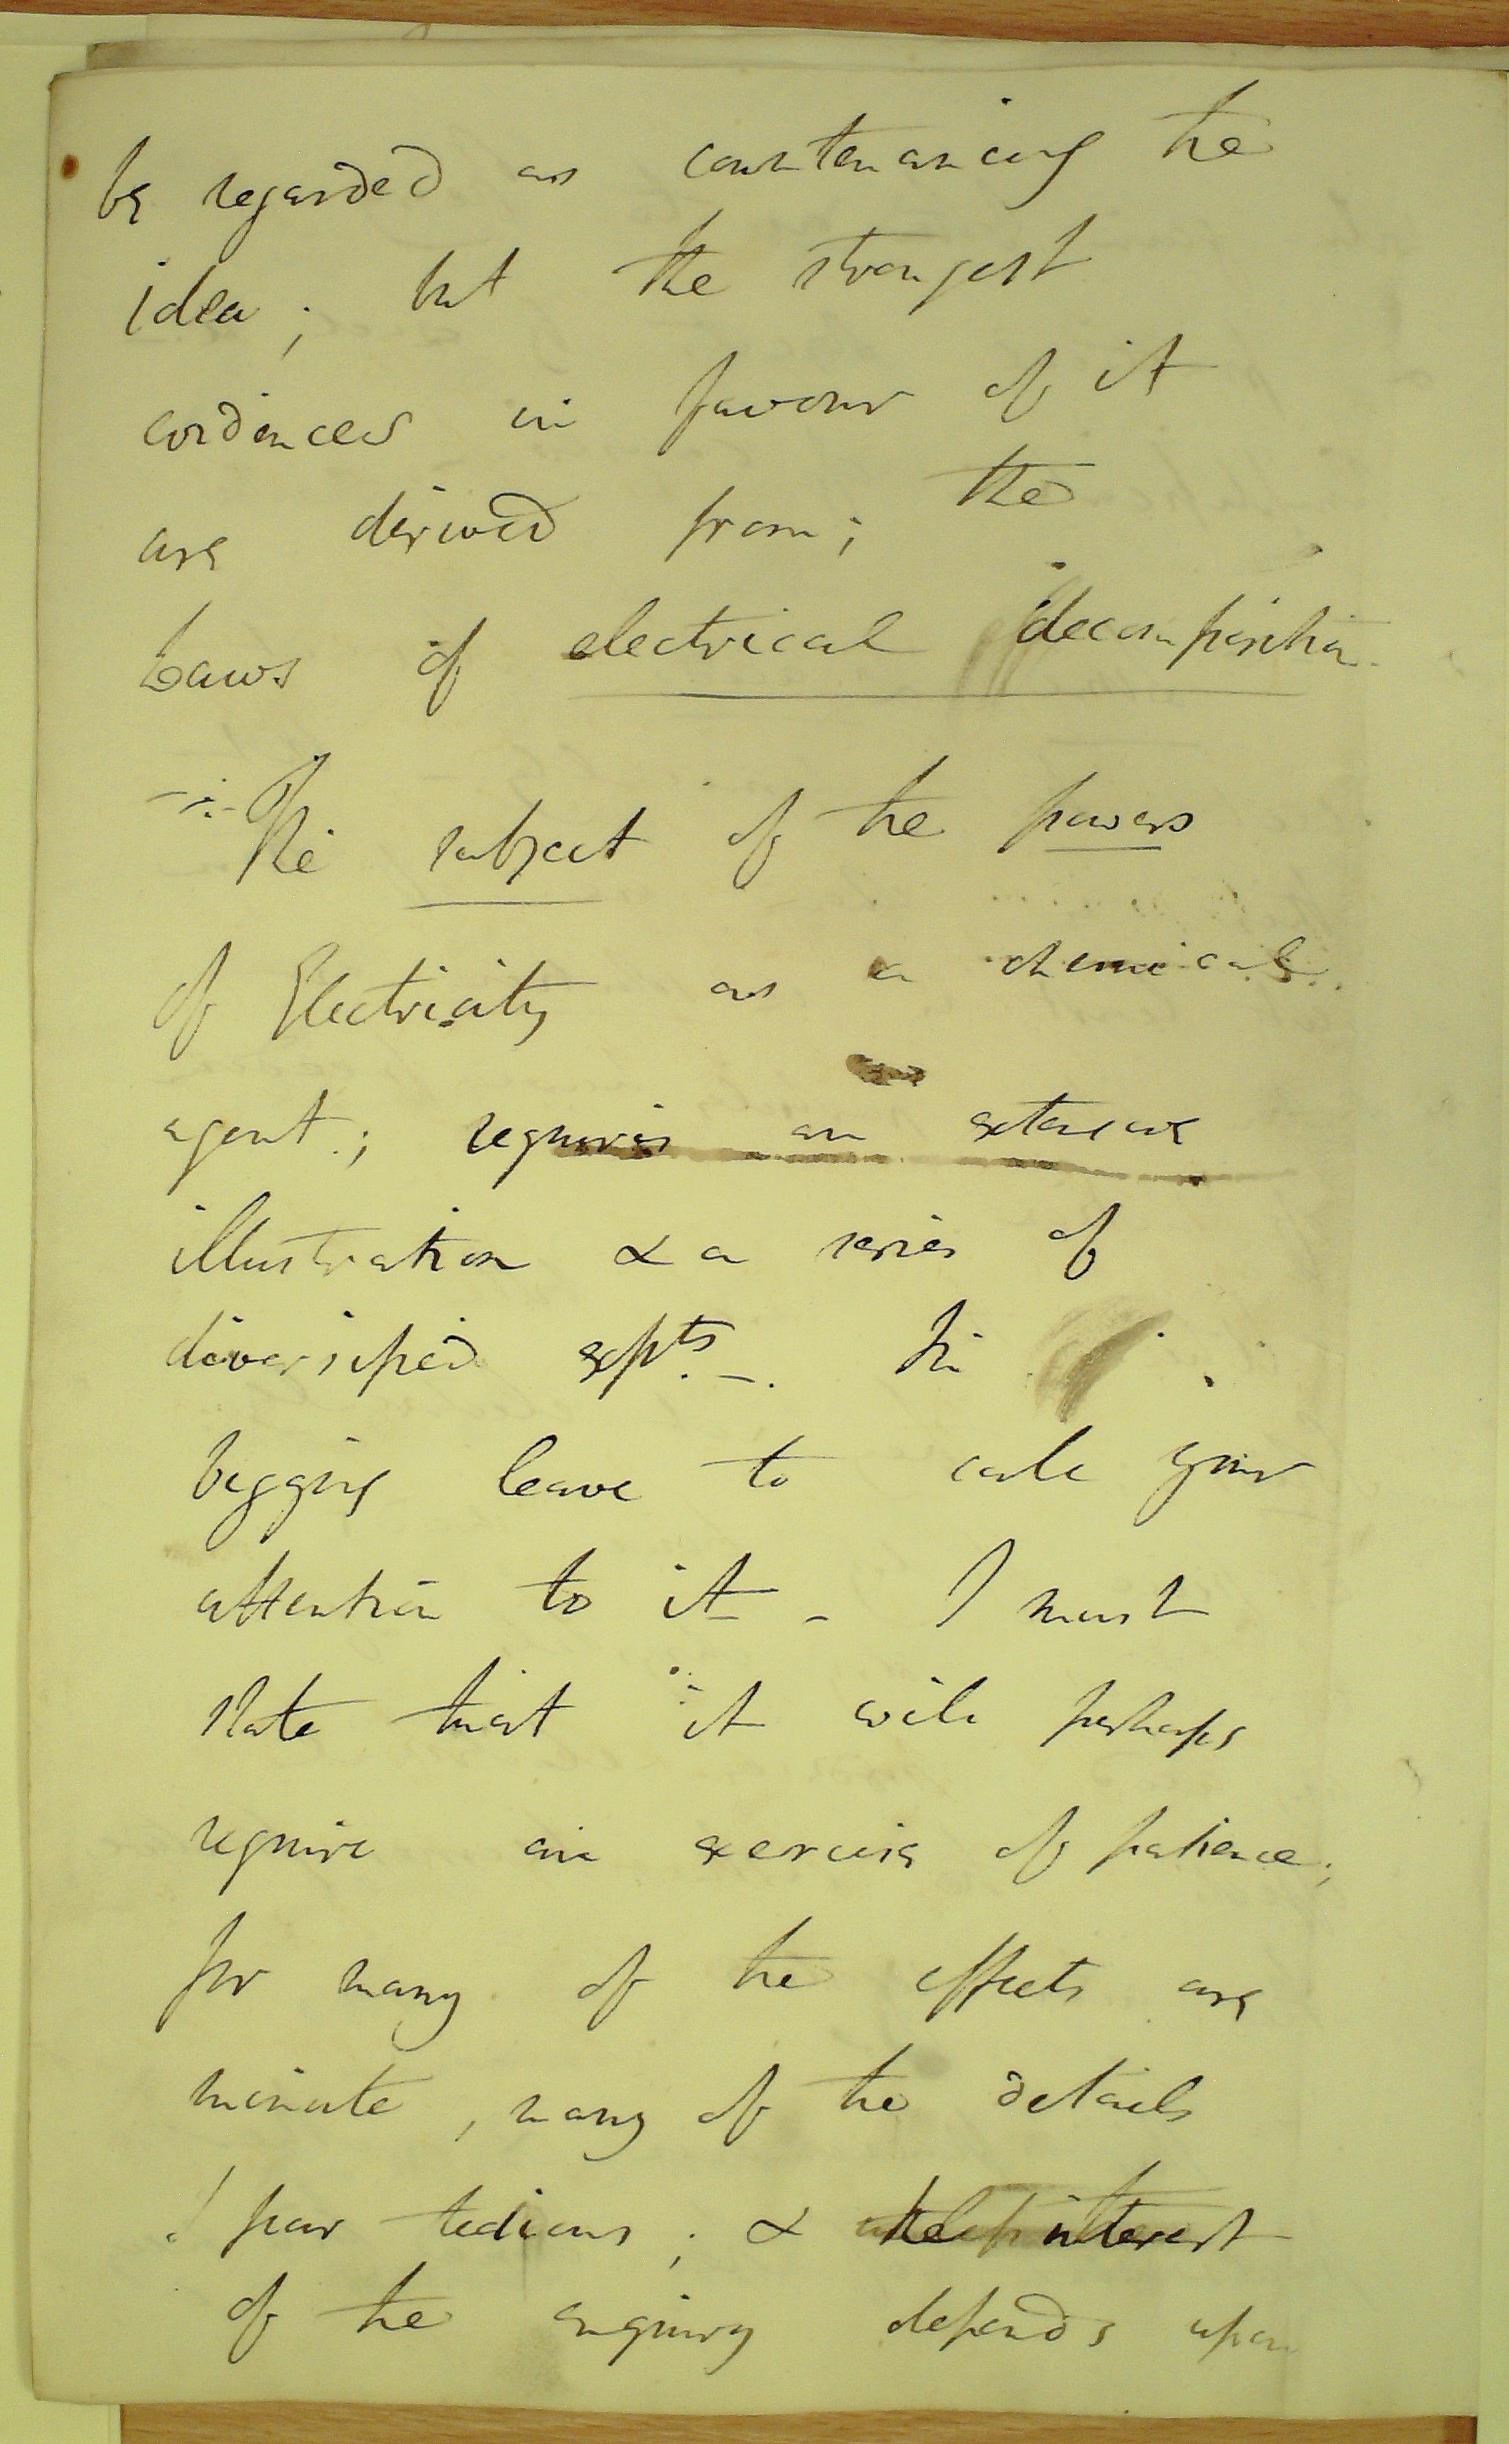 be regarded as countenancing the
idea; but the strongest
evidences in favour of it
are derived from; the
Laws of electrical decomposition.
The subject of the powers
of Electricity as a chemical
agent; requires an extensive
illustration & a series of
diversified expts. - In
begging leave to call your
attention to it - I must
state that it will perhaps
require an exercise of patience;
for many of the effects are
minute, many of the details
I fear tedious; & the interest
of the enquiry depends upon